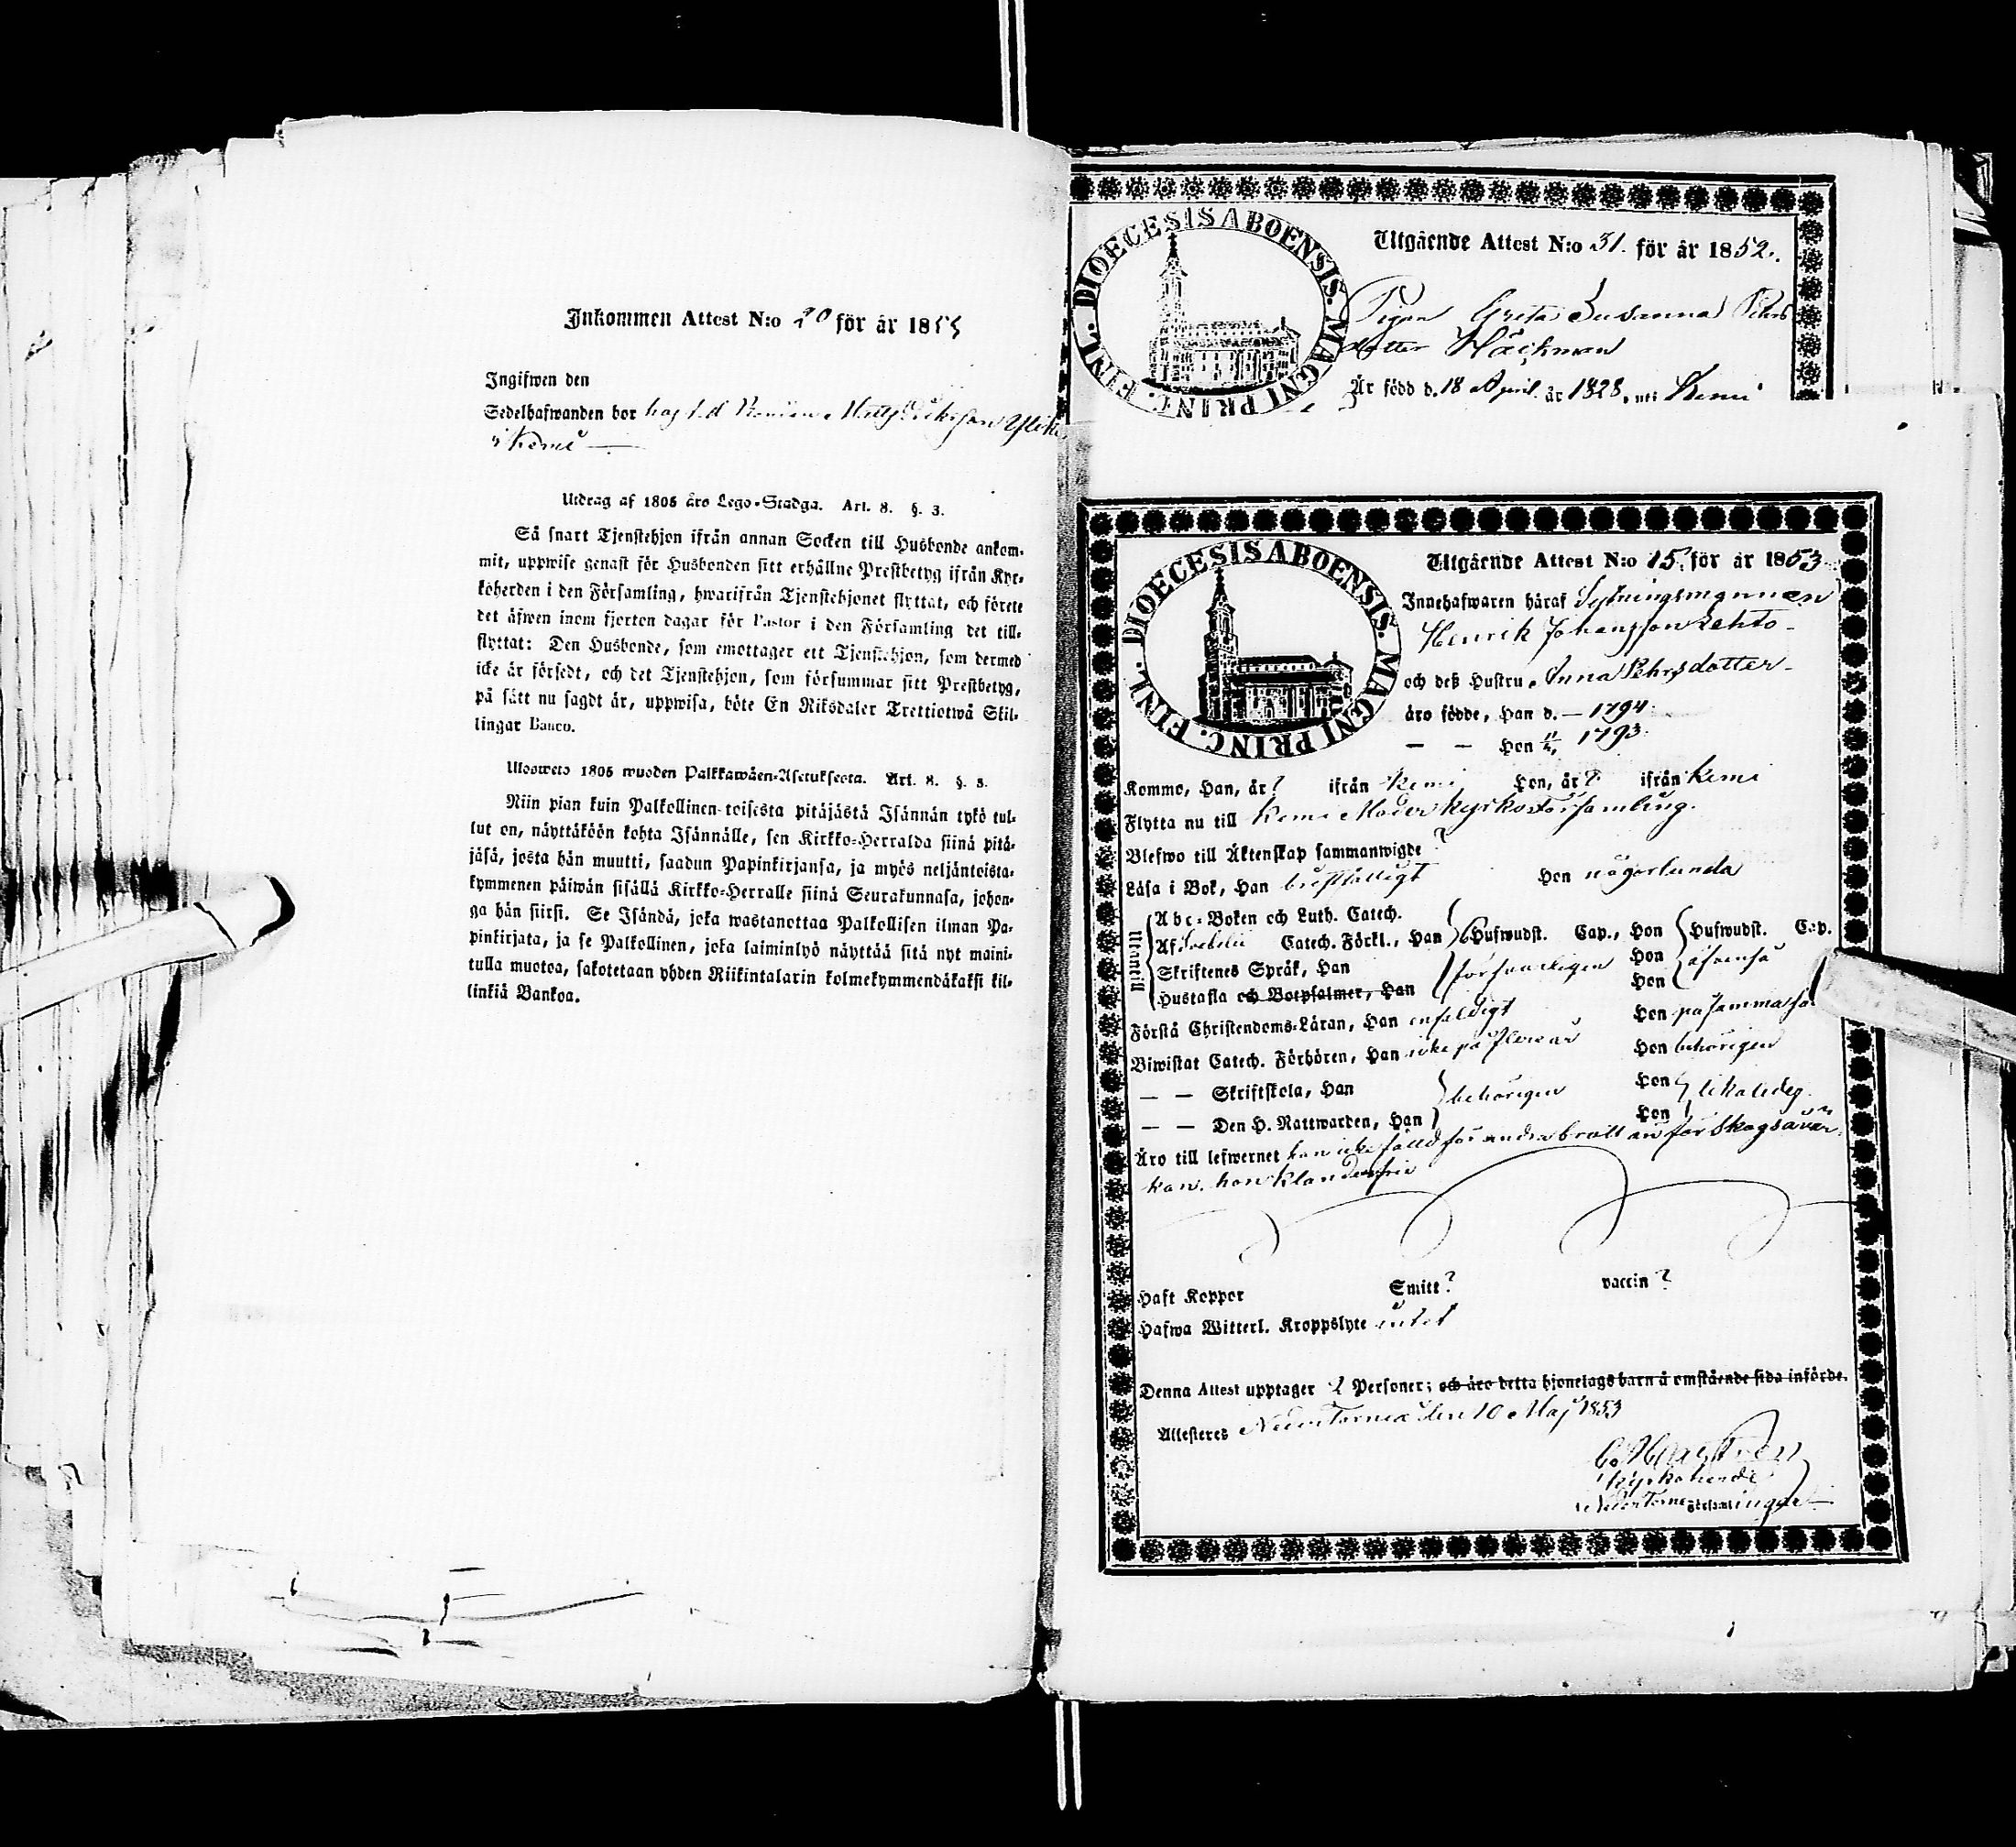 Inkommen Attest N:o 20 för år 1855
Ingifwen den
Sedelhafwanden bor hos
i Kemi
Utdrag af 1805 års Lego-Stadga. Art. 8. §. 3.
Så snart Tjenstehjon ifrån annan Socken till Husbonde ankom-
mit, uppwise genast för Husbonden sitt erhållne Prestbetyg ifrån Kyr-
koherden i den Församling, hwarifrån Tjenstehjonet flyttat, och förete
det äfwen inom fjorton dagar för Pastor i den Församling det till-
flyttat: Den Husbonde, som emottager ett Tjenstehjon, som dermed
icke är försedt, och det Tjenstehjon, som försummar sitt Prestbetyg,
på sätt nu sagdt är, uppwisa, böte En Riksdaler Trettiotwå Skil-
lingar Banco.
Ulosweto 1805 wuoden Palkkawäen-Asetuksesta. Art. 8. §. 3.
Niin pian kuin Palkollinen toisesta pitäjästä Isännän tykö tul-
lut on, näyttäköön kohta Isännälle, sen Kirkko-Herralda siinä pitä-
jäsä, josta hän muutti, saadun Papinkirjansa, ja myös neljäntoista-
kymmenen päiwän sisällä Kirkko-Herralle siinä Seurakunnasa, johon-
ga hän siirsi. Se Isändä, joka wastanottaa Palkollisen ilman Pa-
pinkirjata, ja se Palkollinen, joka laiminlyö näyttää sitä nyt maini-
tulla muotoa, sakotetaan yhden Riikintalarin kolmekymmendäkaksi kil-
linkiä Bankoa.
DIOECESIS ABOENSIS. MAGNI PRINC. FINL.
Utgående Attest N:o 31. för år 1852.
Pigan Greta Susanna Pehrs
dotter Häckman
Är född d. 18 April. år 1828, uti Kemi
DIOECESIS ABOENSIS. MAGNI PRINC. FINL.
Utgående Attest N:o 15. för år 1853.
Innehafwaren häraf Sytningsmannen
Henrik Johansson Lehto
och deß Hustru, Anna Pehrsdotter
äro födde, Han d. — 1794.
— — Hon 1793.
Komme, Han, år ? ifrån Kemi Hon, år ? ifrån Kemi
Flytta nu till Kemi Moderkyrko Församling.
Blefwo till Äktenskap sammanwigde ?
Läsa i Bok, Han bristfälligt Hon någorlunda
Utantill
Abc-Boken och Luth. Catech.
Af Svebilii Catech. Förkl., Han Hufwudst. Cap., Hon Hufwudst. Cap.
Skriftenes Språk, Han försvarligen Hon äfvenså
Hustafla och Botpsalmer, Han Hon
Förstå Christendoms-Läran, Han enfaldigt Hon på samma sätt
Biwistat Catech. Förhören, Han icke på flere år Hon behörigen
— — Skriftskola, Han behörigen Hon likaledes
— — Den H. Nattwarden, Han Hon
Äro till lefwernet han icke fälld för andra brott än för skogsåver-
kan. hon klanderfri
Haft Koppor Smitt? vaccin?
Hafwa Witterl. Kroppslyte intet
Denna Attest upptager 2 Personer; och äro detta hjonelags barn å omstående sida införde.
Attesteres Neder Torneå den 10 Maj 1853
Kyrkoherde
Neder Torne Församlingar